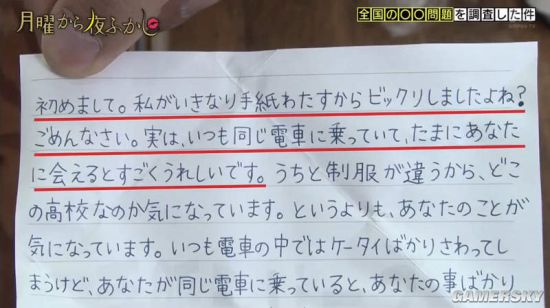 月曜から夜ふかし
全国の〇〇問題を調査した件
初めまして。私がいきなり手紙わたすからビックリしましたよね?
ごめんなさい。実は、いつも同じ電車に乗っていて、たまにあなた
に会えるとすごくうれしいです。うちと制服が違うから、どこ
の高校なのか気になっています。というよりも、あなたのことが
気になっています。いつも電車の中ではケータイばかりさわってし
まうけど、あなたが同じ電車に乗っていると、あなたの事ばかり
GAMERSKY